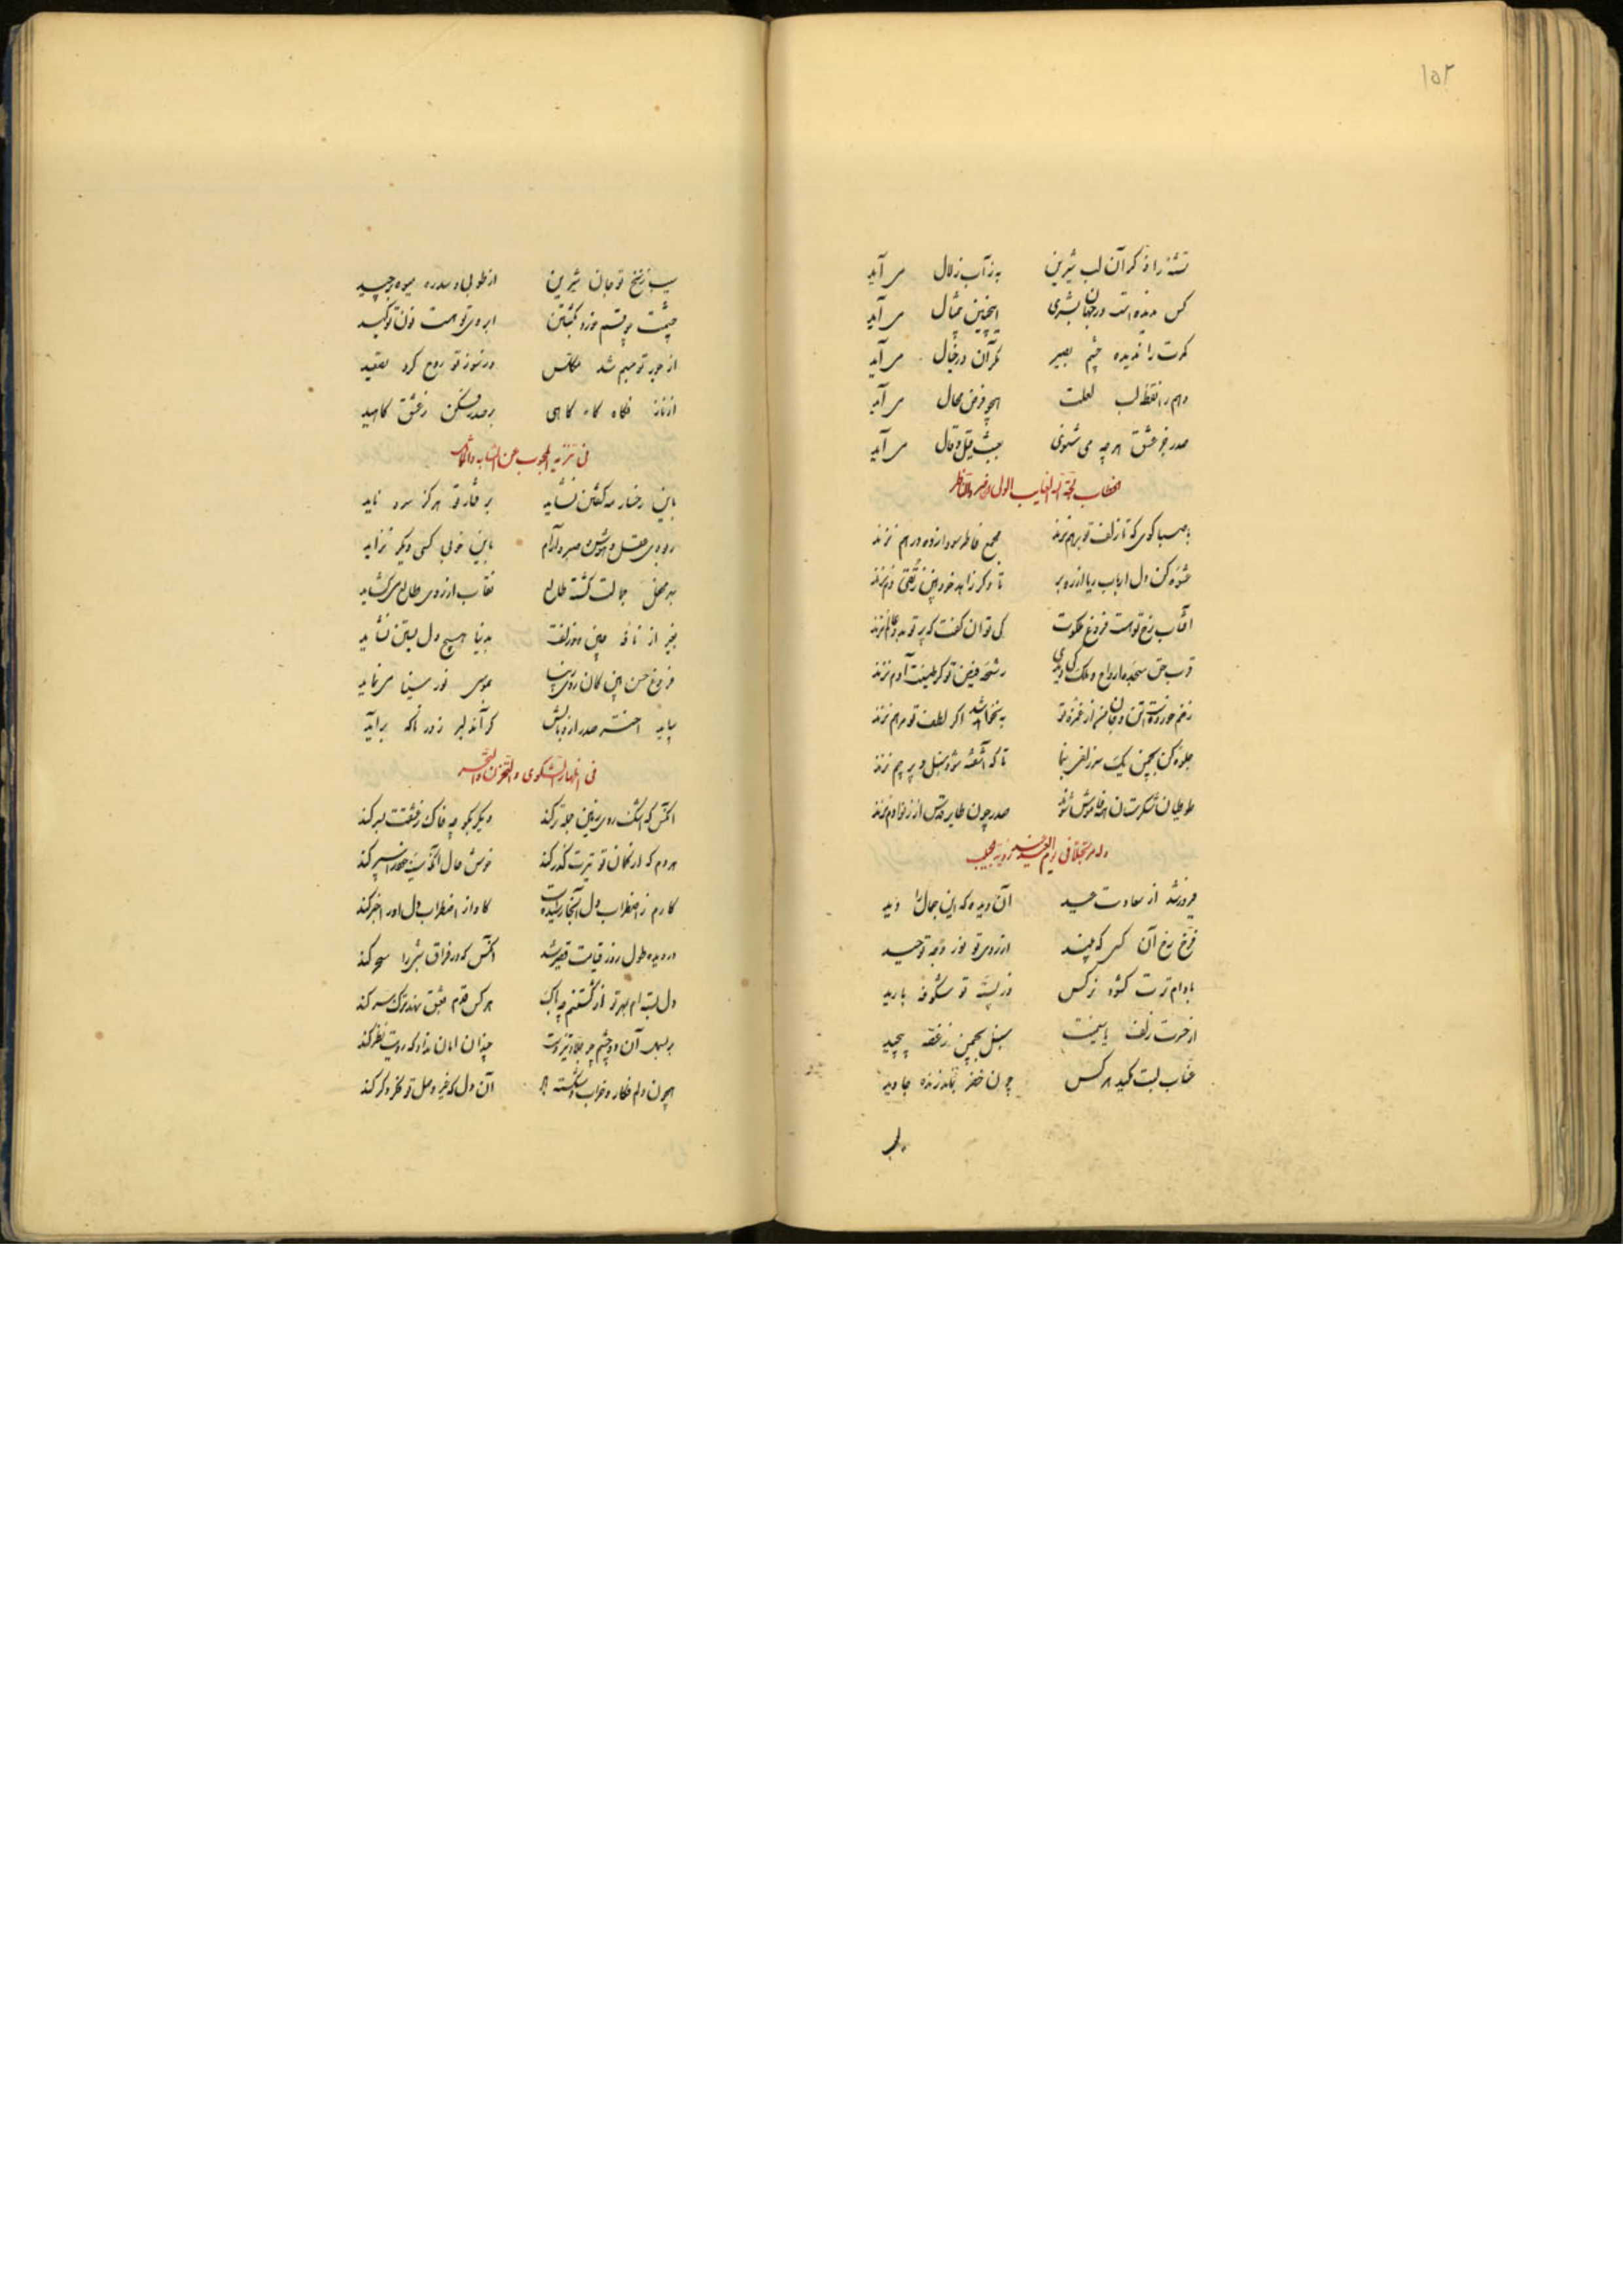 ۱۵۲
تشنه را ذکر آن لب شیرین به ز آب زلال می آید
کس ندیده است در جهان بشری اینچنین بی مثال می آید
کمرت را ندیده چشم بصیر مگر آن در خیال می آید
وهم را نقطه لب لعلت همچو فرض محال می آید
صدر جز عشق هر چه می شنوی بیشت قیل و قال می آید
الغایب
با صبا کوی که تا زلف تو برهم نزند مجمع خاطر سودا زده درهم نزند
عشوه کن دل ارباب ریا از ره بر تا دگر زاهد خودبین ز تقی دم نزند
آفتاب رخ تو هست فروغ ملکوت کی توان گفت که پرتو به دو عالم نزند
رشحه فیض تو گر طینت آدم نزند
زخم خورده است تن و جان از غمزه تو به نخواهد شد اگر لطف تو مرهم نزند
جلوه کن بچمن یک سر زلفی بنما تا که آشفته شود سنبل و پرچم نزند
طوطیان شکرستان همه خاموش شوند صدر چون طایر قدس از نوا دم نزند
وله مرتجلا فی العید
فیروز شد از سعادت عید آن دیده که این جمال را دید
فرخ رخ آن کسی که بیند از روی تو نور وجه توحید
بادام ترت کشوده نرگس در پسته تو شکوفه بارید
از حسرت زلف یاسمینت سنبل بچمن ز غصه پیچید
عناب لبت مکید هر کس چون خضر بماند زنده جاوید
سیب زنخ تو جان شیرین از طوبی و سدره میوه برچید
چشمت بر قسم خورد بکشتن ابروی تو هست نون تاکید
از جور تو جسم شد در نور تو روح کرد تعقید
از ناز نگاه گاه گاهی بر صدر فکن ز عشق کاهید
فی تنزیه المحبوب عن
باین رخسار مه گفتن نشاید بر فتار تو هرگز سرو ناید
ربودی عقل و هوش و صبر و آرام باین خوبی کسی دیگر نزاید
بهر محفل جمالت گشته طالع نقاب از روی طالع می گشاید
بغیر از نافه چین دو زلفت بدنیا هیچ دل بستن نشاید
فروغ حسن بین کان روی زیبا بموسی نور سینا می نماید
بیابد اختر صدر از وبالش گر آن دلبر ز در ناگه برآید
فی اظهار الشکوی و التحزن و التحسر
آنکس که اشک روی زمین جمله تر کند دیگر بگو چه خاک ز عشقت بسر کند
هر دم که از کمان تو تیرت گذر کند خوش حال آنکه سینه خود را سپر کند
کارم ز اضطراب دل آنجا رسیده است کاو از اضطراب دل او را خبر کند
در دیده طول روز قیامت قصیر شد آنکس که در فراق شبی را سحر کند
دل بسته ام بمهر تو از کشتنم چه باک هر کس قدم بعشق نهد ترک سر کند
بر بسمل آن دو چشم چو جلاد تیز دست چندان امان نداد که رویت نظر کند
همچون دلم فکار و خراب و شکسته به آن دل که غیر وصل تو فکر دگر کند